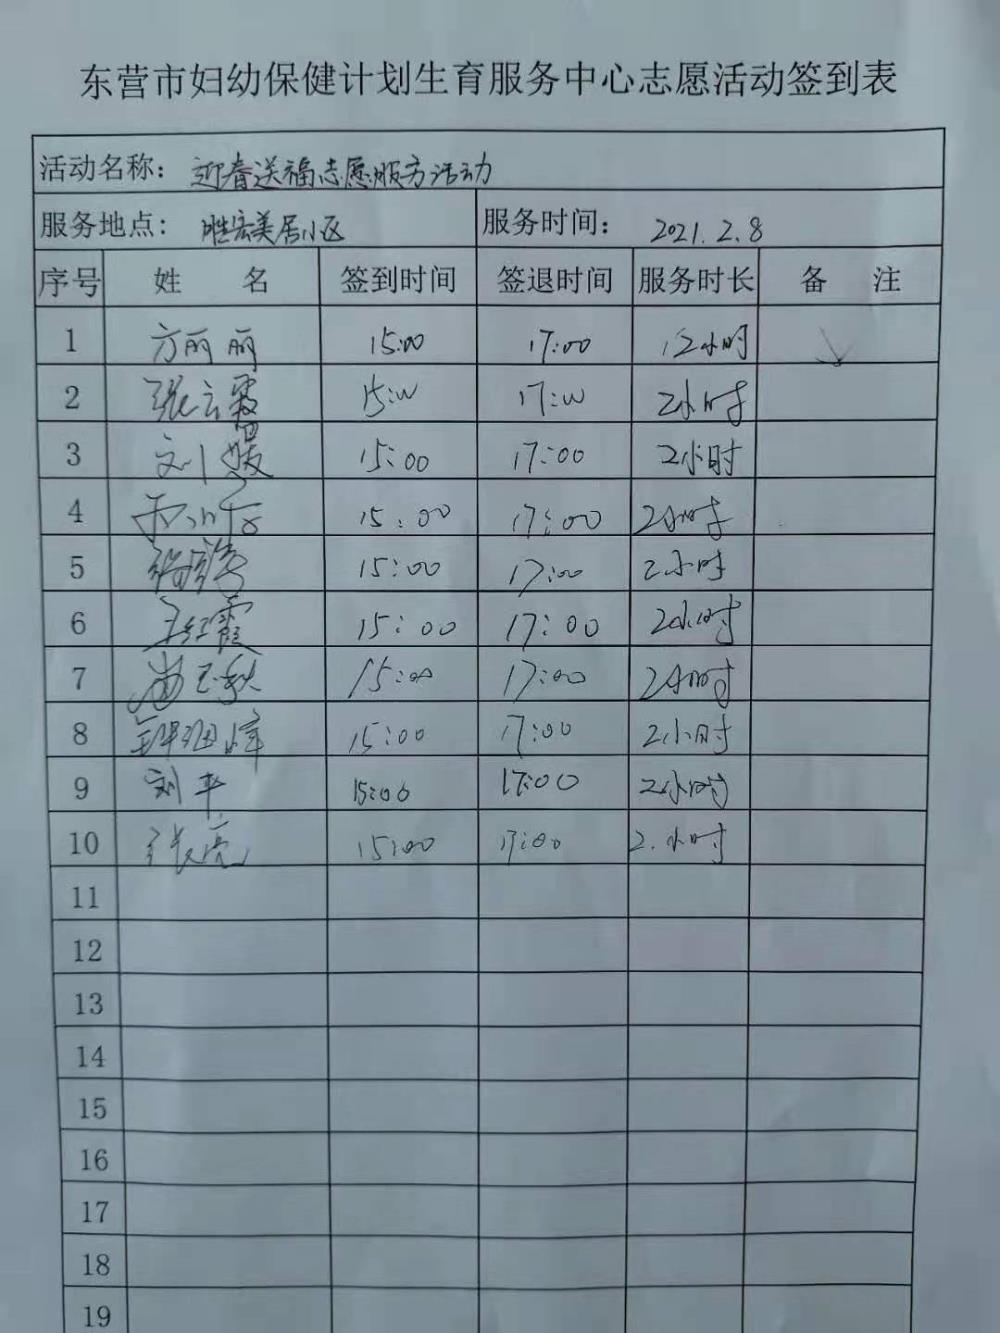 东营市妇幼保健计划生育服务中心志愿活动签到表
活动名称： 迎春送福志愿服务活动
服务地点： 胜宏美居小区 服务时间： 2021.2.8
序号 姓 名 签到时间 签退时间 服务时长 备 注
1 方丽丽 15:00 17:00 2小时
2 张云霞 15:00 17:00 2小时
3 刘小媛 15:00 17:00 2小时
4 15:00 17:00 2小时
5 15:00 17:00 2小时
6 王红霞 15:00 17:00 2小时
7 15:00 17:00 2小时
8 15:00 17:00 2小时
9 刘平 15:00 17:00 2小时
10 张亮 15:00 17:00 2.小时
11
12
13
14
15
16
17
18
19